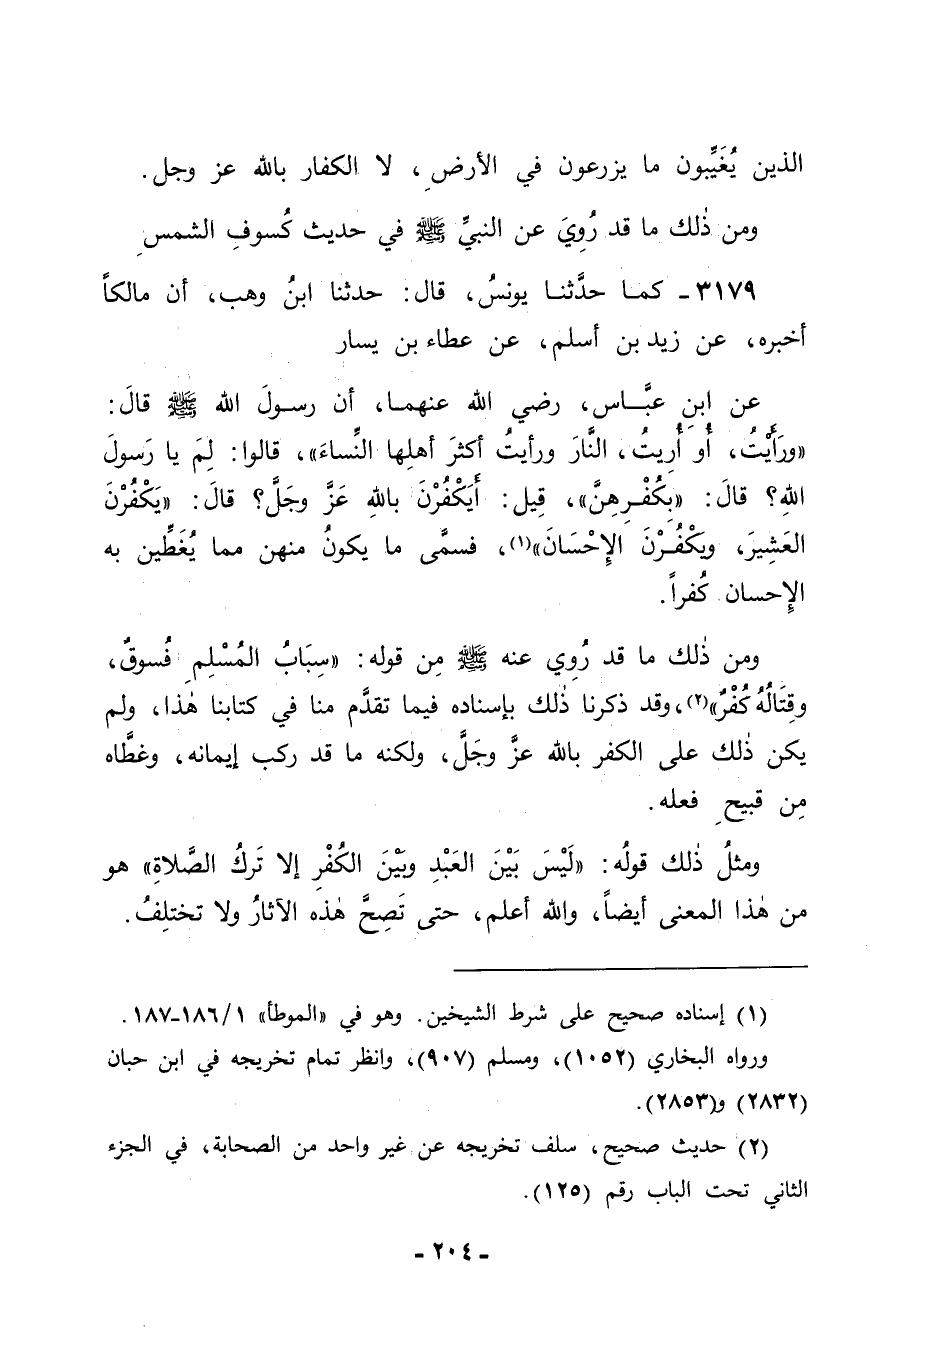 الذين يُغَيِّبون ما يزرعون في الأرضِ، لا الكفار بالله عز وجل.
ومن ذٰلك ما قد رُوِيَ عن النبيِّ ﷺ في حديث كُسوفِ الشمسِ
٣١٧٩ـ كمـا حدَّثنـا يونسُ، قال: حدثنا ابنُ وهب، أن مالكاً
أخبره، عن زيد بن أسلم، عن عطاء بن يسار
عن ابنِ عبَّـاس، رضي الله عنهمـا، أن رسـولَ الله ﷺ قالَ:
«ورَأَيْتُ، أُو أُرِيتُ، النَّارَ ورأيتُ أكثرَ أهلِها النِّساءَ»، قالوا: لِمَ يا رَسولَ
اللهِ؟ قالَ: «بِكُفْـرِهِنَّ»، قِيل: أَيَكْفُرْنَ باللهِ عَزَّ وجَلَّ؟ قالَ: «يَكْفُرْنَ
العَشِيرَ، ويَكْفُـرْنَ الإِحْسَانَ»(١)، فسمَّى ما يكونُ منهن مما يُغَطِّين به
الإِحسان كُفراً.
ومن ذٰلك ما قد رُوِي عنه ﷺ مِن قوله: «سِبَابُ المُسْلِمِ فُسوقٌ،
وقِتَالُهُ كُفْرٌ»(٢)، وقد ذكرنا ذٰلك بإسناده فيما تقدَّم منا في كتابنا هٰذا، ولم
يكن ذٰلك على الكفر بالله عزَّ وجَلَّ، ولكنه ما قد ركب إيمانه، وغطَّاه
مِن قبيحِ فعله.
ومثلُ ذٰلك قولُه: «لَيْسَ بَيْنَ العَبْدِ وبَيْنَ الكُفْرِ إلا تَركُ الصَّلاةِ» هو
من هٰذا المعنى أيضاً، والله أعلم، حتى تَصِحَّ هٰذه الآثارُ ولا تختلِفُ.
(١) إسناده صحيح على شرط الشيخين. وهو في «الموطأ» ١/١٨٦-١٨٧.
ورواه البخاري (١٠٥٢)، ومسلم (٩٠٧)، وانظر تمام تخريجه في ابن حبان
(٢٨٣٢) و(٢٨٥٣).
(٢) حديث صحيح، سلف تخريجه عن غير واحد من الصحابة، في الجزء
الثاني تحت الباب رقم (١٢٥).
ـ ٢٠٤ ـ